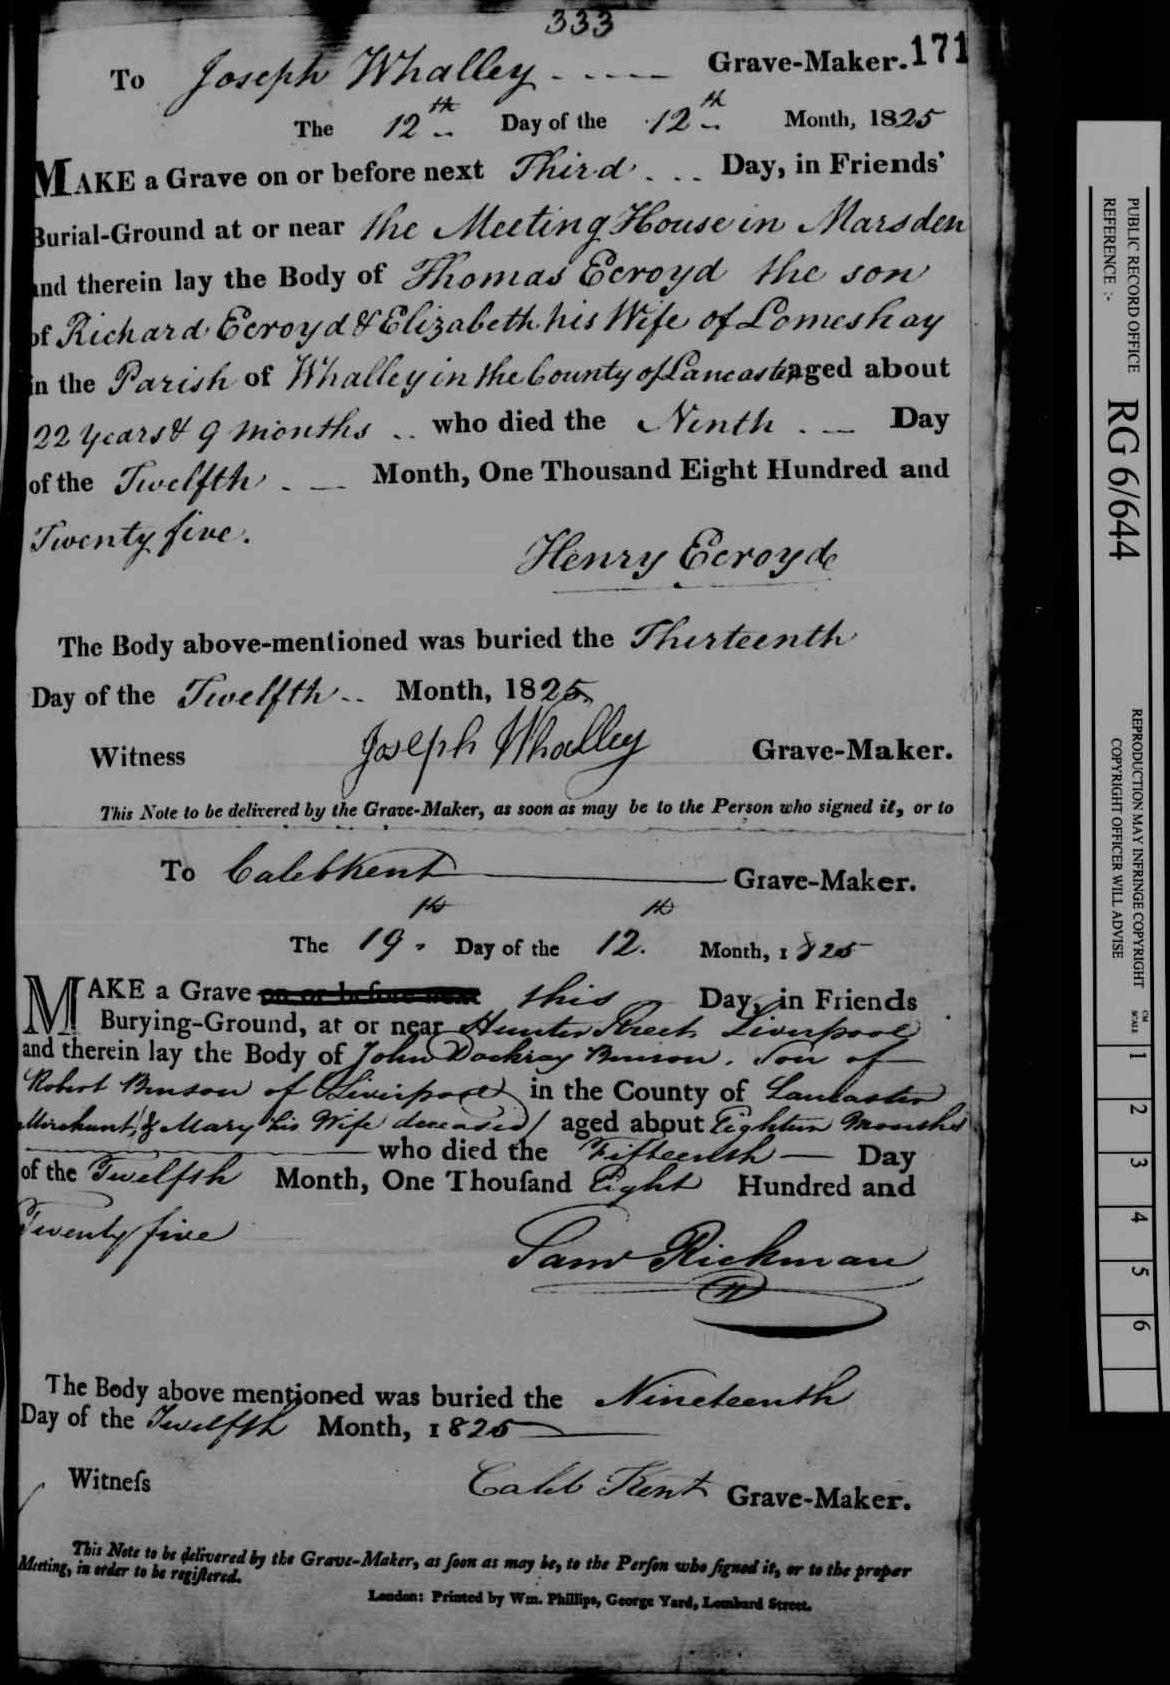 333
171
To Joseph Whalley Grave-Maker.
The 12th Day of the 12th Month, 1825
MAKE a Grave on or before next Third Day, in Friends'
Burial-Ground at or near the Meeting House in Marsden
and therein lay the Body of Thomas Ecroyd the son
of Richard Ecroyd & Elizabeth his Wife of Lomeshay
in the Parish of Whalley in the County of Lancaster aged about
22 Years & 9 Months who died the Ninth Day
of the Twelfth Month, One Thousand Eight Hundred and
Twenty five.
Henry Ecroyd
The Body above-mentioned was buried the Thirteenth
Day of the Twelfth Month, 1825
Witness Joseph Whalley Grave-Maker.
This Note to be delivered by the Grave-Maker, as soon as may be to the Person who signed it, or to
To Caleb Kent Grave-Maker.
The 19th Day of the 12th Month, 1825
MAKE a Grave on or before next this Day, in Friends
Burying-Ground, at or near Hunter Street Liverpool
and therein lay the Body of John Dockray Benson, Son of
Robert Benson of Liverpool in the County of Lancaster
Merchant, & Mary his Wife deceased) aged about Eighteen Months
who died the Fifteenth Day
of the Twelfth Month, One Thouſand Eight Hundred and
Twenty five
Saml Rickman
The Body above mentioned was buried the Nineteenth
Day of the Twelfth Month, 1825
Witneſs Caleb Kent Grave-Maker.
This Note to be delivered by the Grave-Maker, as ſoon as may be, to the Perſon who ſigned it, or to the proper
Meeting, in order to be regiſtered.
London: Printed by Wm. Phillips, George Yard, Lombard Street.
PUBLIC RECORD OFFICE
REFERENCE :-
RG 6/644
REPRODUCTION MAY INFRINGE COPYRIGHT
COPYRIGHT OFFICER WILL ADVISE
CM
SCALE
1
2
3
4
5
6